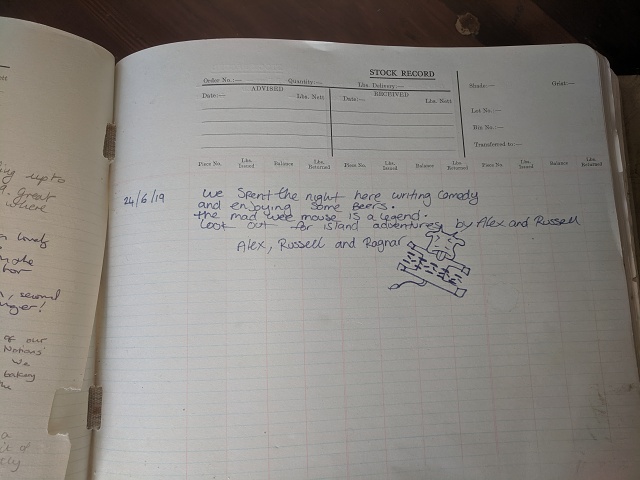 STOCK RECORD
Order No.:— Quantity:— Lbs. Delivery:— Shade:— Grist:—
ADVISED RECEIVED
Date:— Lbs. Nett Date:— Lbs. Nett
Lot No.:—
Bin No.:—
Transferred to:—
Piece No. Lbs. Issued Balance Lbs. Returned Piece No. Lbs. Issued Balance Lbs. Returned Piece No. Lbs. Issued Balance Lbs. Returned
24/6/19 We spent the night here writing comedy
and enjoying some beers.
the mad wee mouse is a legend.
look out for island adventures by Alex and Russell
Alex, Russell and Ragnar
up to
great
where
lovely
the
second
of our
Nations'
we
baking
the
a